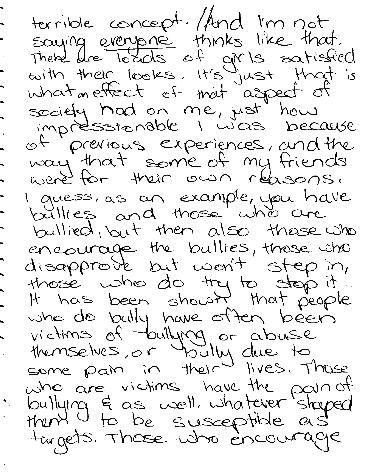 terrible concept. //And I'm not
saying everyone thinks like that.
There are loads of girls satisfied
with their looks. It's just that is
what an effect of that aspect of
society had on me, just how
impressionable I was because
of previous experiences, and the
way that some of my friends
were for their own reasons.
I guess, as an example, you have
bullies and those who are
bullied, but then also those who
encourage the bullies, those who
disapprove but won't step in,
those who do try to stop it.
It has been shown that people
who do bully have often been
victims of bullying or abuse
themselves, or bully due to
some pain in their lives. Those
who are victims have the pain of
bullying & as well, whatever shaped
them to be susceptible as
targets. Those who encourage